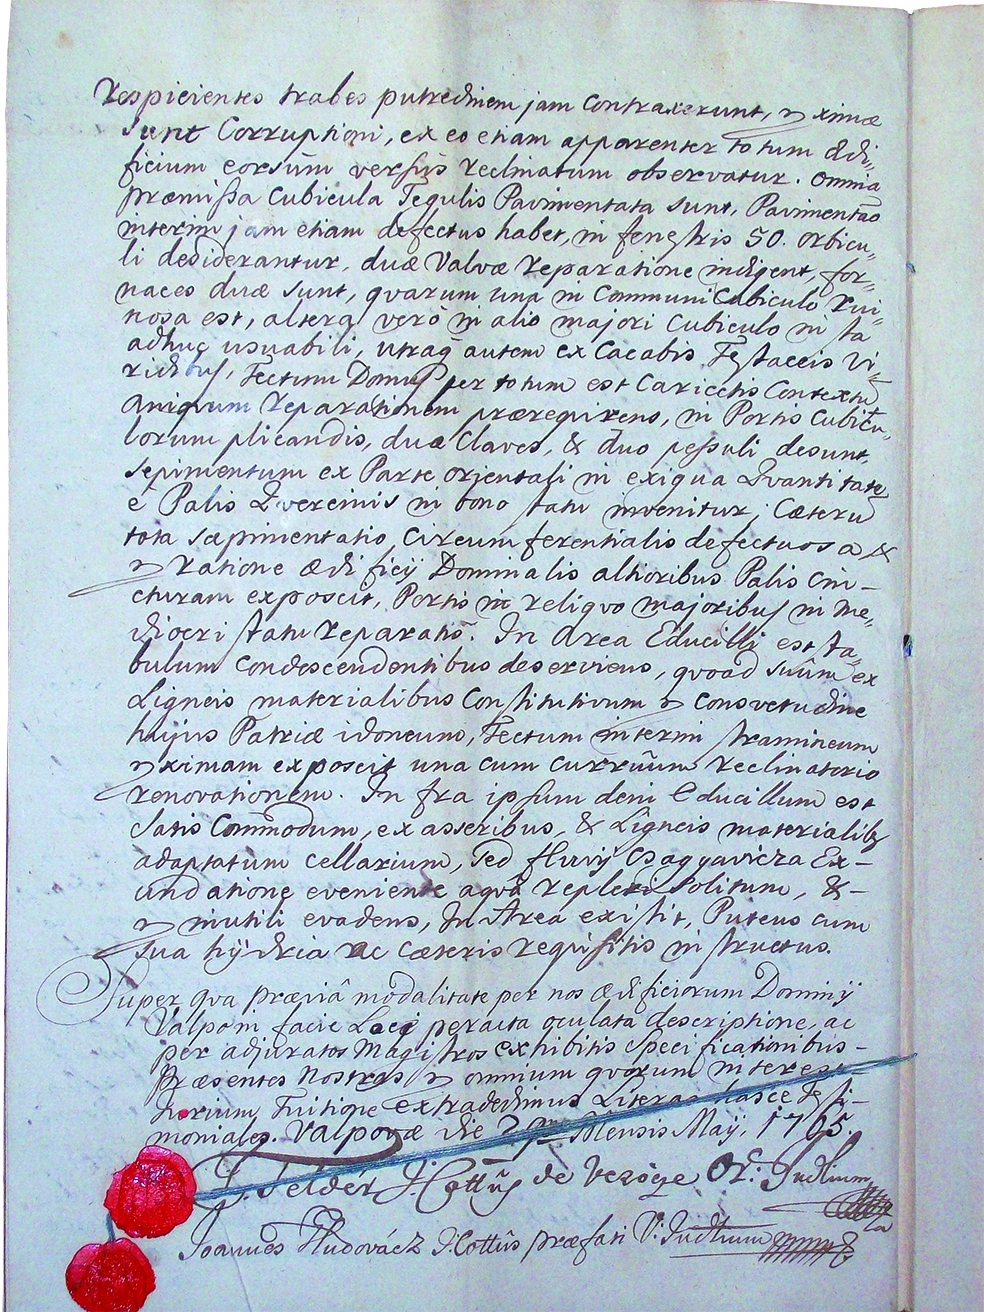 respicientes trabes putredinem jam contraxerunt, & ximæ
sunt Corruptioni, ex eo etiam apparenter totum Ædi„
ficium eorsùm versùs reclinatum observatur. Omnia
præmissa Cubicula Tegulis Pavimentata sunt, Pavimentão
interim jam etiam defectus habet, in fenestris 50. orbicu„
li desiderantur, duæ Valvæ reparatione indigent, for„
naces duæ sunt, quarum una in Communi Cubiculo rui„
nosa est, altera verò in alio majori Cubiculo in sta
adhuc usuabili, utraq̃ autem ex Cacabis Testaceis vi„
ridibus, Tectum Domus per totum est Caricetis Contextu
aniquum reparationem prærequirens, in Portis Cubicu„
lorum plicandis, duæ Claves, & duo pessuli desunt,
Sepimentum ex Parte orientali in exigua Quantitate
è Palis Quercinis in bono statu invenitur, Cæterũ
tota sæpimentatio Circumferentialis defectuosa &
& ratione ædificij Dominalis altioribus Palis cin–
cturam exposcit, Portis in reliquo majoribus in me„
diocri statu reparatis. In Area Educilli est sta„
bulum condescendentibus deserviens, quoad suum ex
Ligneis materialibus Constitutivum & Consvetudine
hujus Patriæ idoneum, Tectum interim stramineum
& ximam exposcit una cum curruum reclinatorio
renovationem. Infra ipsum deni Educillum est
satis Commodum, ex asseribus, & Ligneis materialib9
adaptatum cellarium, sed fluvij Csagyavicza Ex–
undatione eveniente aquâ repleri solitum, &–
& inutili evadens, In Area existit, Puteus cum
sua hÿdria ac cæteris requisitis instructus.
Super qua præviâ modalitate per nos ædificiorum Dominÿ
Valpon facie Loci peracta oculata descriptione, ac
per adjuratos Magistros exhibitis specificationibus–
Præsentes Nostras & omnium quorum interest–
Jurium Tuitione extradedimus Literas hasce Testi–
moniales. Valpovæ die Mensis Maÿ, 1765.
de Vezöge Or: Judlium
Joannes Hudovácz J: Cottûs præfati V: Judlium